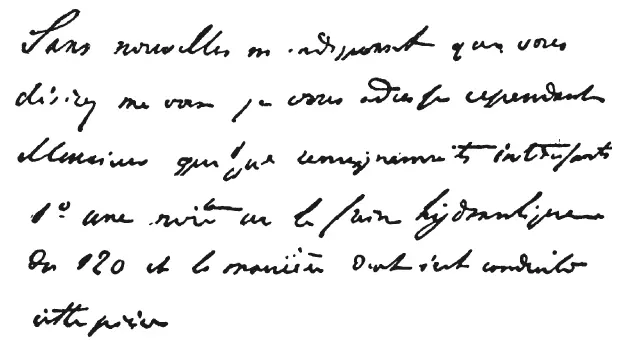 Sans nouvelles m'indiquant que vous
désirez me voir je vous adresse cependant
Monsieur quelques renseignements intéressants
1° une note sur le frein hydraulique
du 120 et la manière dont s'est conduite
cette pièce